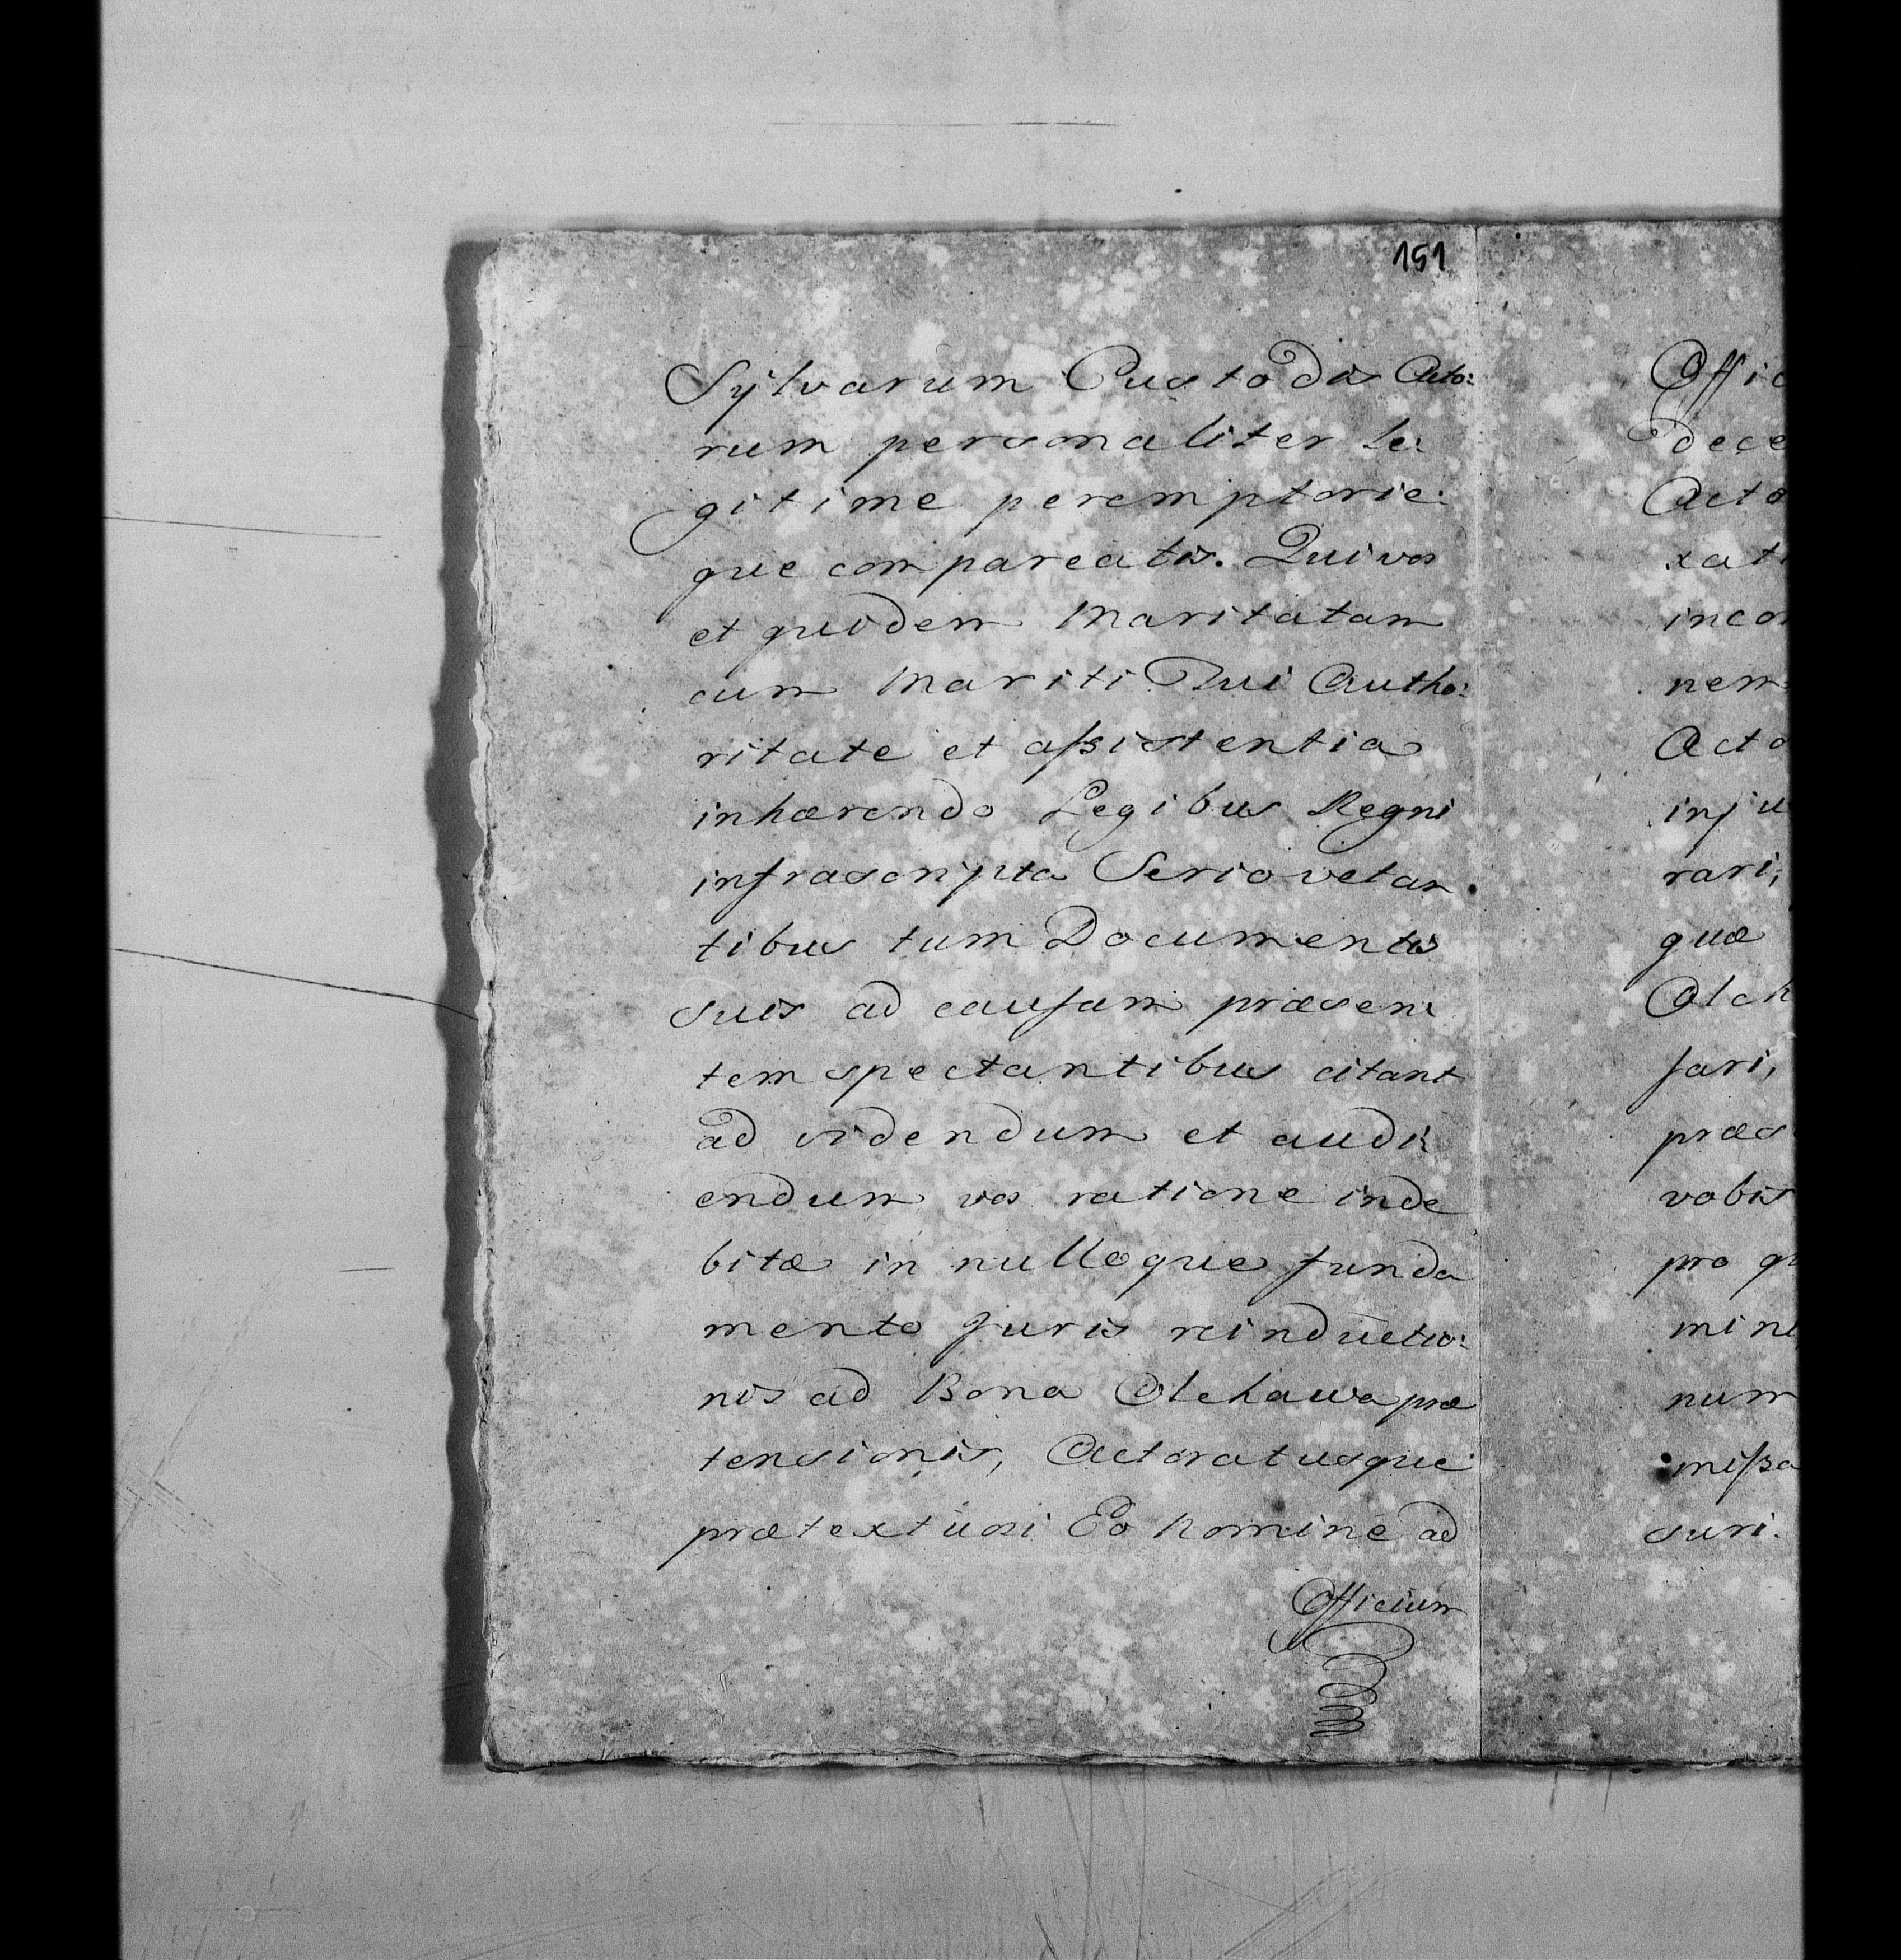 151
Sylvarum Custodis Acto:
rum personaliter le:
gitime peremptorie:
que compareatis. Qui vos
et quidem Maritatam
cum Mariti Sui Autho:
ritate et assistentia
inhærendo Legibus Regni
infrascripta Serio vetan
tibus tum Documentis
suis ad causam præsen:
tem spectantibus citant
ad videndum et audi:
endum vos ratione inde
bitæ in nulloque funda
mento Juris reinductio:
nis ad Bona Olchawa præ
tensionis, Actoratusque
prætextuosi Eo Nomine ad
Officium
Offic
dece
Acto
xati
incon
nem
Acto
inju
rari,
quæ
Olch
sari,
præs
vobis
pro qu
mine
num
missa
suri.